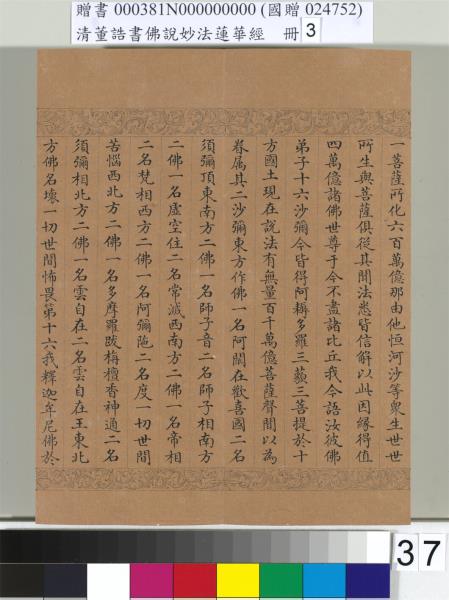 贈書 000381N000000000 (國贈 024752)
清董誥書佛說妙法蓮華經 冊 3
一菩薩所化六百萬億那由他恒河沙等衆生世世
所生與菩薩俱從其聞法悉皆信解以此因緣得值
四萬億諸佛世尊于今不盡諸比丘我今語汝彼佛
弟子十六沙彌今皆得阿耨多羅三藐三菩提於十
方國土現在說法有無量百千萬億菩薩聲聞以為
眷属其二沙彌東方作佛一名阿閦在歡喜國二名
須彌頂東南方二佛一名師子音二名師子相南方
二佛一名虛空住二名常滅西南方二佛一名帝相
二名梵相西方二佛一名阿彌陁二名度一切世間
苦惱西北方二佛一名多摩羅跋栴檀香神通二名
須彌相北方二佛一名雲自在二名雲自在王東北
方佛名壞一切世間怖畏第十六我釋迦牟尼佛於
37